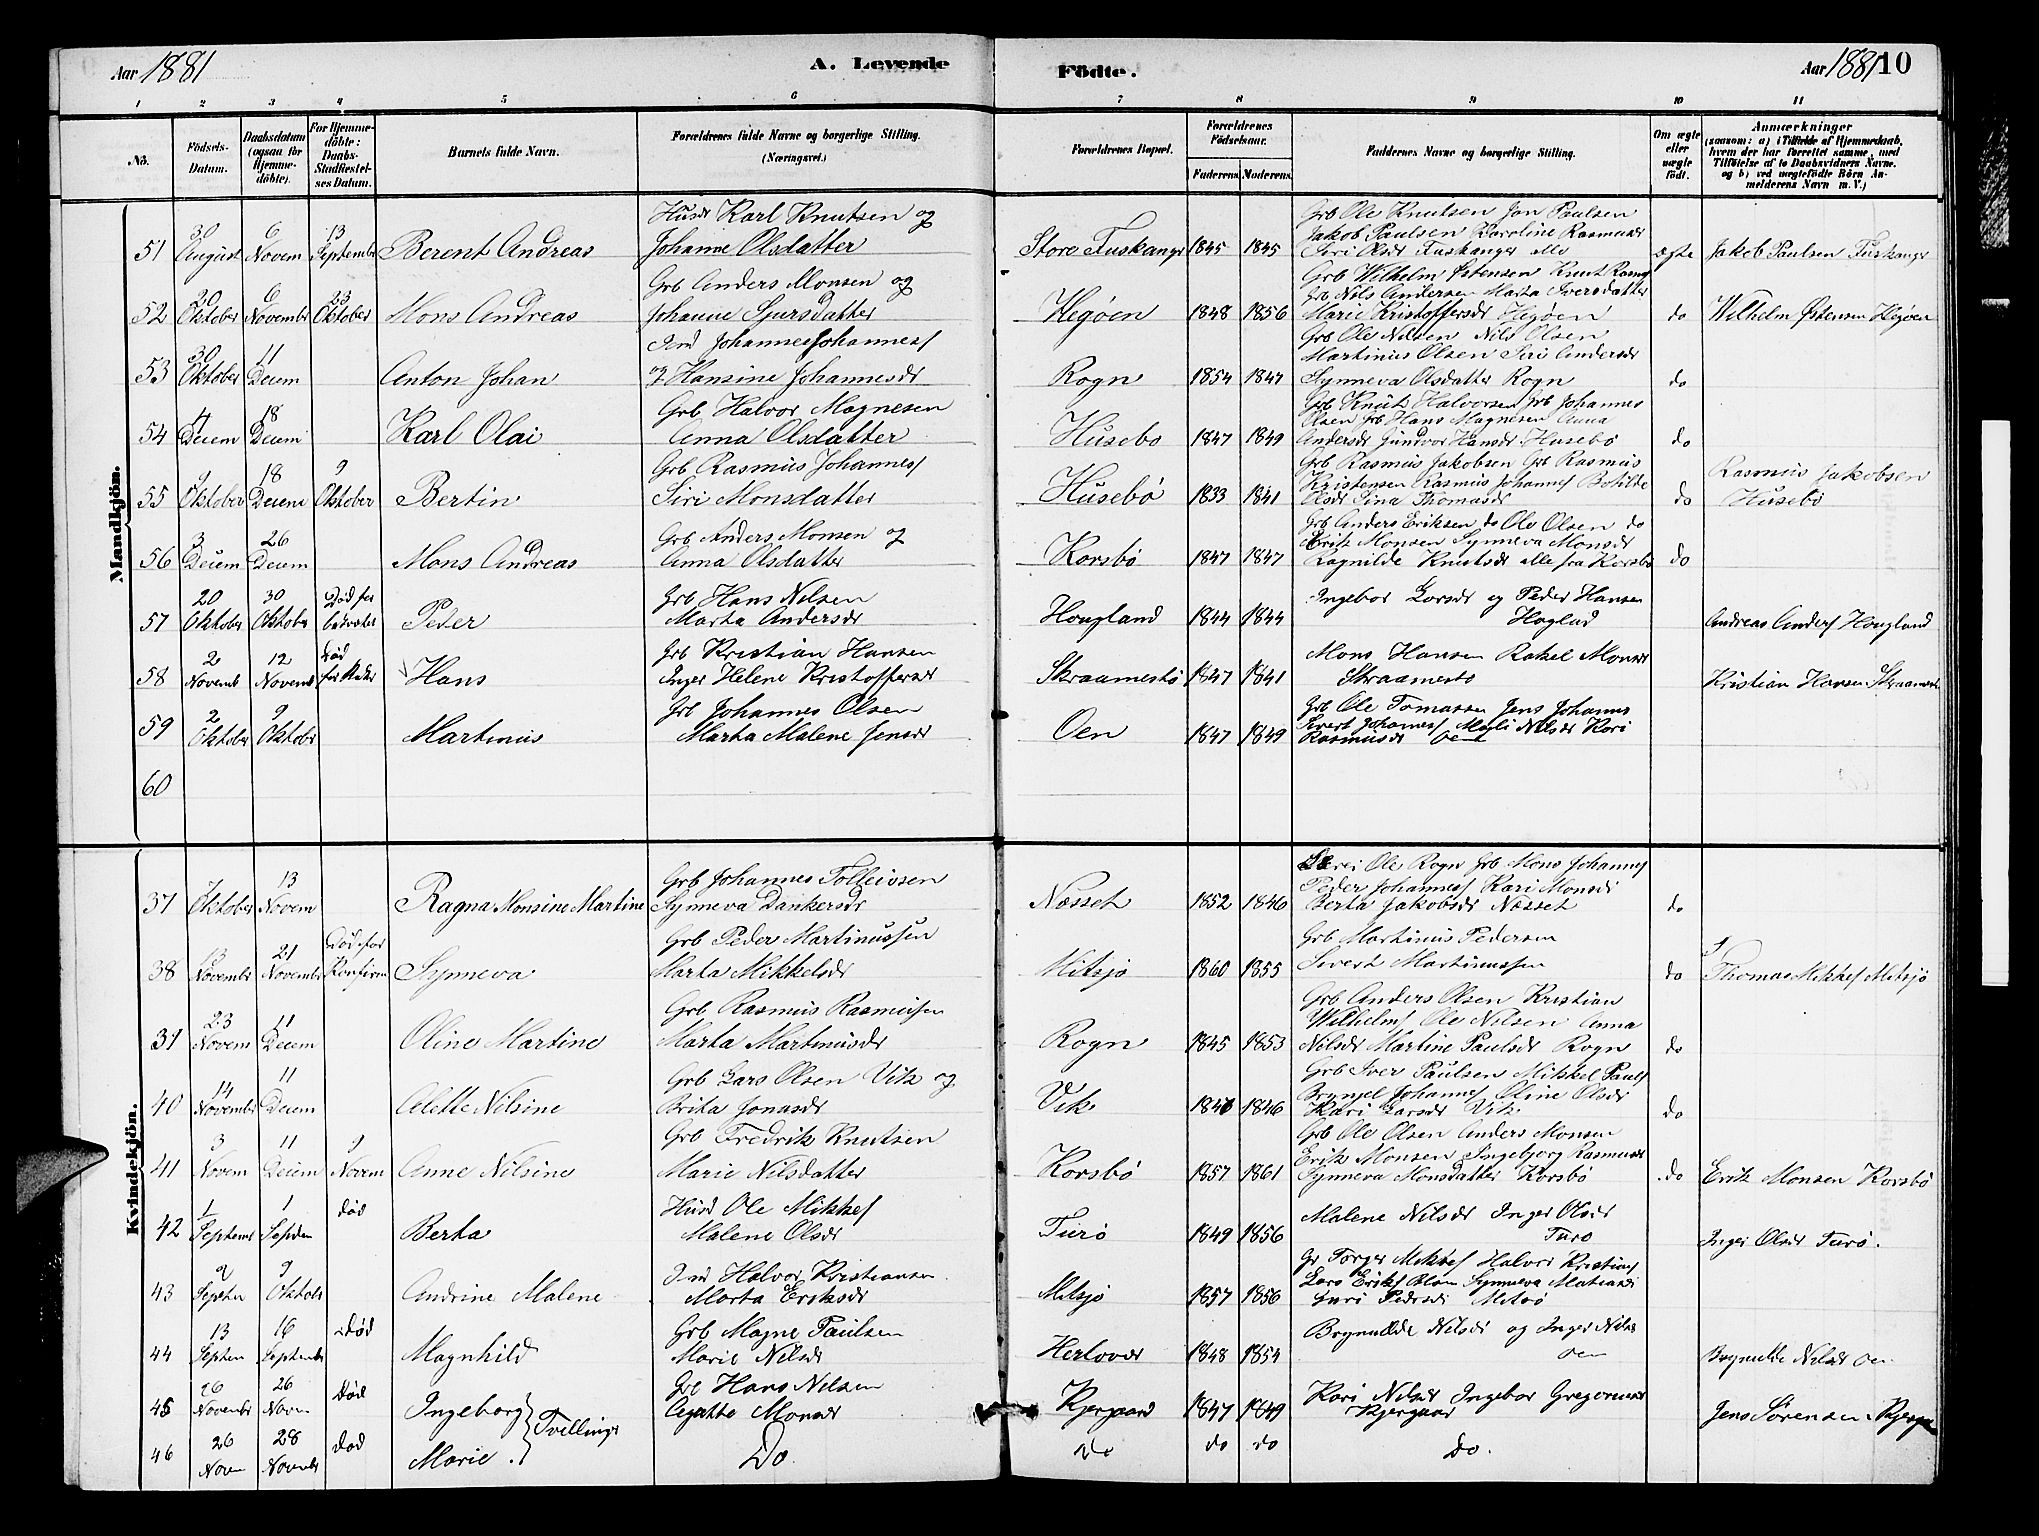 Aar 1881 A. Levende Födte. Aar 1881 10
1 2 3 4 5 6 7 8 9 10 11
No. Födsels-Datum. Daabsdatum (ogsaa for Hjemmedöbte). For Hjemmedöbte: Daabs-Stadfæstelses Datum. Barnets fulde Navn. Forældrenes fulde Navne og borgerlige Stilling. (Næringsvei.) Forældrenes Bopæl. Forældrenes Födselsaar. Faderens. Moderens. Faddernes Navne og borgerlige Stilling. Om ægte eller uægte födt. Anmærkninger (saasom: a) i Tilfælde af Hjemmedaab, hvem der har forrettet samme, med Tilföielse af to Daabsvidners Navne, og b) ved uægtefödte Börn Anmelderens Navn m. V.)
Mandkjön.
51 30 August 6 Novem 13 Septembr Berent Andreas Husm Karl Knutsen og Johanne Olsdatter Store Tuskanger 1845 1845 Grb Ole Knutsen Jon Paulsen Jakob Paulsen Karoline Rasmusdr Siri Olsdr Tuskanger alle ægte Jakob Paulsen Tuskangr
52 20 Oktober 6 Novembr 23 Oktober Mons Andreas Grb Anders Monsen og Johanne Sjursdatter Hegøen 1848 1856 Grb Wilhelm Østensen Knut Rasm Grb Nils Andersen Marta Iversdatter Marie Kristoffersdr Hegøen do Wilhelm Østensen Hegøen
53 30 Oktober 11 Decem Anton Johan Johannes Johannes og Hansine Johannesdr Rogn 1854 1847 Grb Ole Nilsen Nils Olsen Martinus Olsen Siri Andersdr Synneva Olsdatter Rogn do
54 4 Decem 18 Decem Karl Olai Grb Halvor Magnesen Anna Olsdatter Husebo 1847 1849 Grb Knut Halvorsen Grb Johannes Olsen Grb Hans Magnesen Anna Andersdr Gundvor Hansdr Husebö do
55 9 Oktober 18 Decem 9 Oktober Bertin Grb Rasmus Johannes Siri Monsdatter Husebö 1833 1841 Grb Rasmus Jakobsen Grb Rasmus Kristensen Rasmus Johannes Botilde Olsdr Sina Thomasdr do Rasmus Jakobsen Husebö
56 3 Decem 26 Decem Mons Andreas Grb Anders Monsen og Anna Olsdatter Korsbö 1847 1847 Grb Anders Eriksen do Ole Olsen do Erik Monsen Synneva Monsdr Ragnilde Knutsdr alle fra Korsbö do
57 20 Oktober 30 Oktober Död før Peder Grb Hans Nilsen Marta Andersdr Hougland 1844 1844 Ingebor Larsdr og Peder Hansen Andreas Anders Hougland
58 2 Novemb 12 Novemb Død Hans Grb Kristian Hansen Inger Helene Kristoffersdr Skraamestö 1847 1841 Mons Hansen Rakel Monsdr Skraamesto Kristian Hansen Skraamestö
59 2 Oktober 9 Oktobr Martinus Grb Johannes Olsen Marta Malene Jensdr Oen 1847 1849 Grb Ole Tomassen Jens Johannes Sivert Johannes Nilsdr Kari Rasmusdr
60
Kvindekjön.
37 7 Oktober 13 Novem Ragna Monsine Martine Grb Johannes Tolleivsen Synneva Dankersdr Nösset 1852 1846 Ole Rogn Grb Mons Johannes Peder Johannes Kari Monsdr Berta Jakobsdr Nösset do
38 13 Novembr 21 Novembr Död før Konfirm Synneva Grb Peder Martinussen Marta Mikkelsdr Mitsjo 1860 1855 Grb Martinus Pedersen Sivert Martinussen do Thomas Mikkels Mitsjö
31 23 Novem 11 Decem Oline Martine Grb Rasmus Rasmusen Marta Martinusdr Rogn 1845 1853 Grb Anders Olsen Kristian Wilhelms Ole Nilsen Anna Nilsdr Martine Paulsdr Rogn do
40 14 Novembr 11 Decem Alette Nilsine Grb Lars Olsen Vik og Brita Jonasdr Vik 1840 1846 Grb Iver Paulsen Mikkel Pauls Brynjel Johannes Oline Olsdr Kari Larsdr Vik do
41 3 Novem 11 Decem 9 Novem Anne Nilsine Grb Fredrik Knutsen Marie Nilsdatter Korsbö 1857 1861 Grb Ole Olsen Anders Monsen Erik Monsen Ingebjorg Rasmusdr Synneva Monsdatter Korsbö do Erik Monsen Korsbö
42 1 Septembr 1 Septem död Berta Husm Ole Mikkels Malene Olsdr Turö 1849 1856 Malene Nilsdr Inger Olsdr Turo Inger Olsdr Turö.
43 9 Septem 9 Oktob Andrine Malene Halvor Kristiansen Marta Eriksdr Mitsjö 1857 1856 Gr Torger Mikkels Halvor Kristians Lars Eriks Synneva Guro Pedersdr
44 13 Septem 16 Septembr död Magnhild Grb Magne Paulsen Marie Nilsdr Herlovær 1848 1854 Brynilde Nilsdr og Inger Nilsdr oen Brynilde Nilsdr oen
45 26 Novembr 26 Novem Död Ingeborg Grb Hans Nilsen Agatte Monsdr Kjergaard 1847 1849 Kari Nilsdr Ingebor Gregoriusdr Kjergaar Jens Sörensen Kjerga
Tvillinger
46 26 Novem 28 Novembr död Marie. Do Do do do Do.